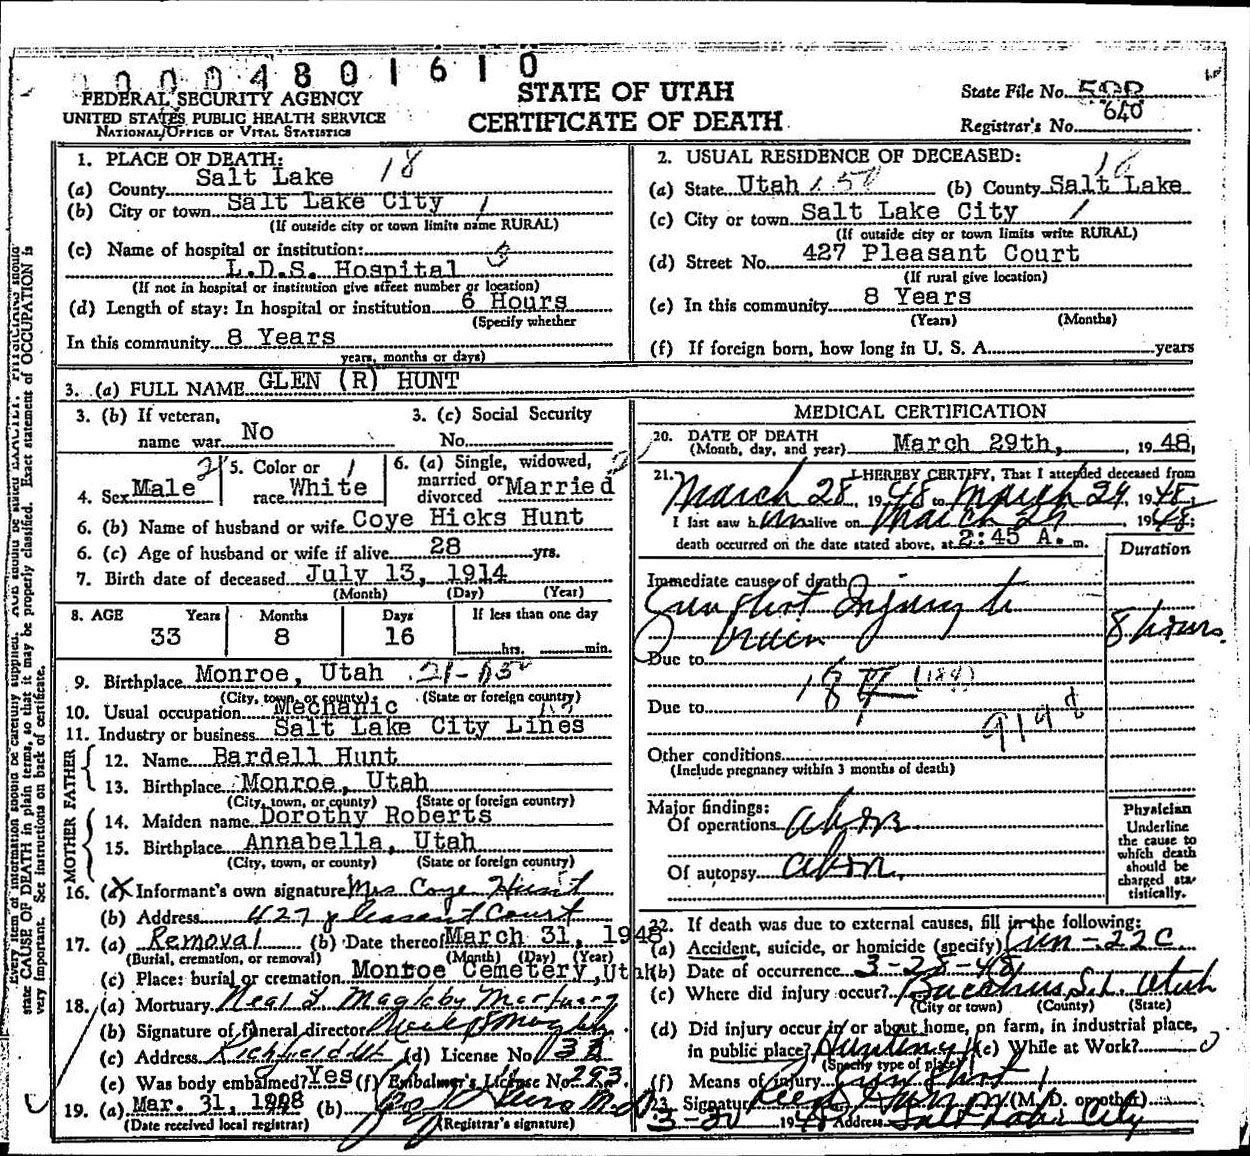 0004801610
FEDERAL SECURITY AGENCY
UNITED STATES PUBLIC HEALTH SERVICE
NATIONAL OFFICE OF VITAL STATISTICS
STATE OF UTAH
CERTIFICATE OF DEATH
State File No.
Registrar's No. 640
1. PLACE OF DEATH: 18
(a) County Salt Lake
(b) City or town Salt Lake City 1
(If outside city or town limits name RURAL)
(c) Name of hospital or institution:
L.D.S. Hospital
(If not in hospital or institution give street number or location)
(d) Length of stay: In hospital or institution 6 Hours
(Specify whether
In this community 8 Years
years, months or days)
2. USUAL RESIDENCE OF DECEASED:
(a) State Utah (b) County Salt Lake
(c) City or town Salt Lake City 1
(If outside city or town limits write RURAL)
(d) Street No. 427 Pleasant Court
(If rural give location)
(e) In this community 8 Years
(Years) (Months)
(f) If foreign born, how long in U. S. A. years
3. (a) FULL NAME GLEN (R) HUNT
3. (b) If veteran,
name war No
3. (c) Social Security
No.
4. Sex Male 2
5. Color or
race White 1
6. (a) Single, widowed,
married or
divorced Married
6. (b) Name of husband or wife Coye Hicks Hunt
6. (c) Age of husband or wife if alive 28 yrs.
7. Birth date of deceased July 13, 1914
(Month) (Day) (Year)
8. AGE Years Months Days If less than one day
33 8 16 hrs. min.
9. Birthplace Monroe, Utah
(City, town, or county) (State or foreign country)
10. Usual occupation Mechanic
11. Industry or business Salt Lake City Lines
FATHER
12. Name Bardell Hunt
13. Birthplace Monroe, Utah
(City, town, or county) (State or foreign country)
MOTHER
14. Maiden name Dorothy Roberts
15. Birthplace Annabella, Utah
(City, town, or county) (State or foreign country)
16. (a) Informant's own signature Mrs Coye Hunt
(b) Address 427 pleasant Court
17. (a) Removal (b) Date thereof March 31, 1948
(Burial, cremation, or removal) (Month) (Day) (Year)
(c) Place: burial or cremation Monroe Cemetery, Utah
18. (a) Mortuary Neal S. Magleby Mortuary
(b) Signature of funeral director
(c) Address Richfield Ut. (d) License No.
(e) Was body embalmed? Yes (f) Embalmer's License No. 293
19. (a) Mar. 31, 1948 (b)
(Date received local registrar) (Registrar's signature)
MEDICAL CERTIFICATION
20. DATE OF DEATH
(Month, day, and year) March 29th, 1948,
21. I HEREBY CERTIFY, That I attended deceased from
March 28, 1948 to March 29, 1948,
I last saw him alive on March 29 1948;
death occurred on the date stated above, at 2:45 A. m.
Duration
Immediate cause of death
Gun shot Injury to
brain 8 hours.
Due to
Due to
Other conditions
(Include pregnancy within 3 months of death)
Major findings:
Of operations
Of autopsy
Physician
Underline
the cause to
which death
should be
charged sta-
tistically.
22. If death was due to external causes, fill in the following:
(a) Accident, suicide, or homicide (specify)
(b) Date of occurrence 3-28-48
(c) Where did injury occur? Bacchus, S.L. Utah
(City or town) (County) (State)
(d) Did injury occur in or about home, on farm, in industrial place,
in public place? Hunting (e) While at Work?
(Specify type of place)
(f) Means of injury Gun Shot
23. Signature (M. D. or other)
1948 Address Salt Lake City
Every item of information should be carefully supplied. AGE should be stated EXACTLY. PHYSICIANS should
state CAUSE OF DEATH in plain terms, so that it may be properly classified. Exact statement of OCCUPATION is
very important. See instructions on back of certificate.